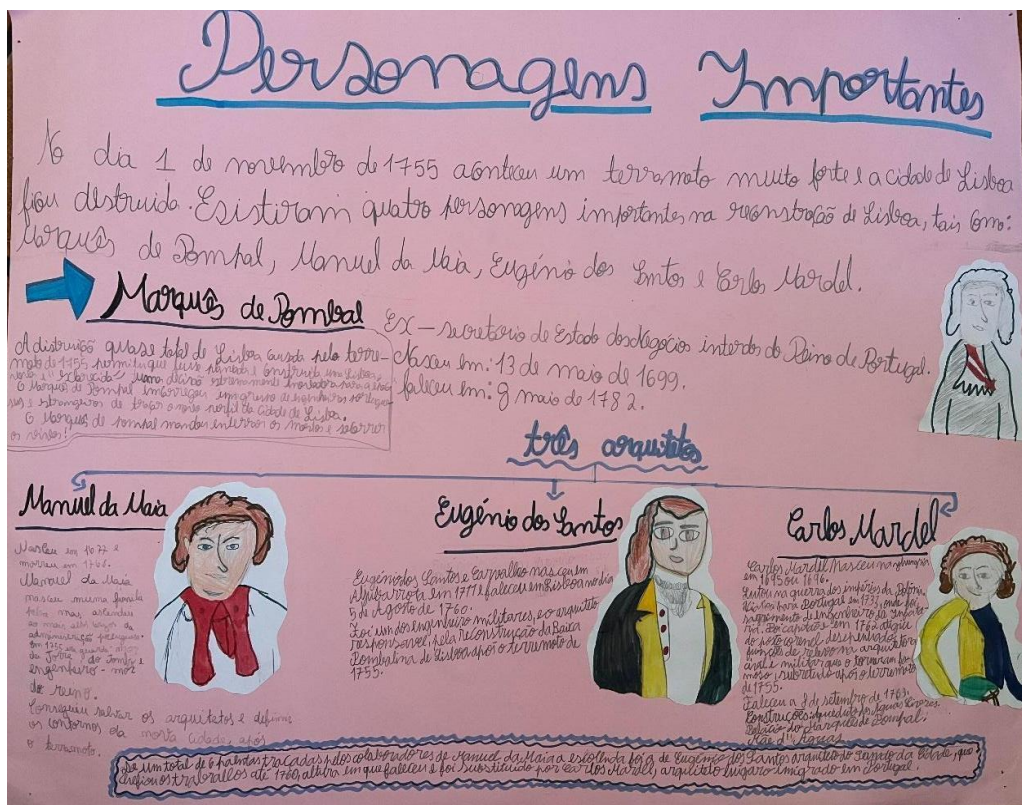 Personagens Importantes
No dia 1 de novembro de 1755 aconteceu um terramoto muito forte e a cidade de Lisboa
ficou distruida. Esistiram quatro personagens importantes na reconstroção de Lisboa, tais como:
Marquês de Pompal, Manuel da Maia, Eugénio dos Santos e Carlos Mardel.
Marquês de Pombal
A distruição quase total de Lisboa causada pelo terra-
moto de 1755 permitiu que fosse planeada e construida em Lisboa,
uma extremamente inovadora para a época
O Marquês de Pompal encarregou um grupo de engenheiros portugue-
ses e estrangeiros de traçar o novo perfil da cidade de Lisboa.
O Marquês de pompal mandou enterrar os mortos e socorrer
os vivos!
Ex-secretário de Estado dos Negócios interios do Reino de Portugal.
Nasceu em: 13 de maio de 1699.
faleceu em: 8 maio de 1782.
três arquitetos
Manuel da Maia
Nasceu em 1677 e
morreu em 1768.
Manuel da Maia
nasceu numa família
mas ascendeu
ao mais alto
administração portuguesa.
da Torre do Tombo e
engenheiro-mor
do reino.
Conseguiu salvar os arquitetos e definiu
os contornos da nova cidade, após
o terramoto.
Eugénio dos Santos
Eugénio dos Santos e Carvalho nasceu em
Aljubarrota em 1711 faleceu em Lisboa no dia
5 de Agosto de 1760.
Foi um dos engenheiro militares, e o arquiteto
responsável, pela reconstrução da Baixa
Pombalina de Lisboa após o terramoto de
1755.
Carlos Mardel
Carlos Mardel Nasceu na
em 1695 ou 1696.
Lutou na guerra dos impérios da
para Portugal em 1733, onde foi
sargemento de engenheiro de Infanta-
ria. Foi capitão em 1762 atingiu
de desempenhado
funções de relevo na arquitetura
civil e militar que o tornaram fa-
moso, sobretudo após o terramoto
de 1755.
Faleceu a 8 de setembro de 1763.
Construções: Aqueduto das Águas Livres.
Palácio do Marquês de Pompal.
Mãe d'Aguas
De um total de 6 plantas traçadas pelos colaboradores de Manuel da Maia a escolhida foi a de Eugénio dos Santos arquiteto do Senado da Cidade, que
dirigiu os trabalhos até 1760, altura em que faleceu e foi substituido por Carlos Mardel, arquiteto húngaro imigrado em Portugal.